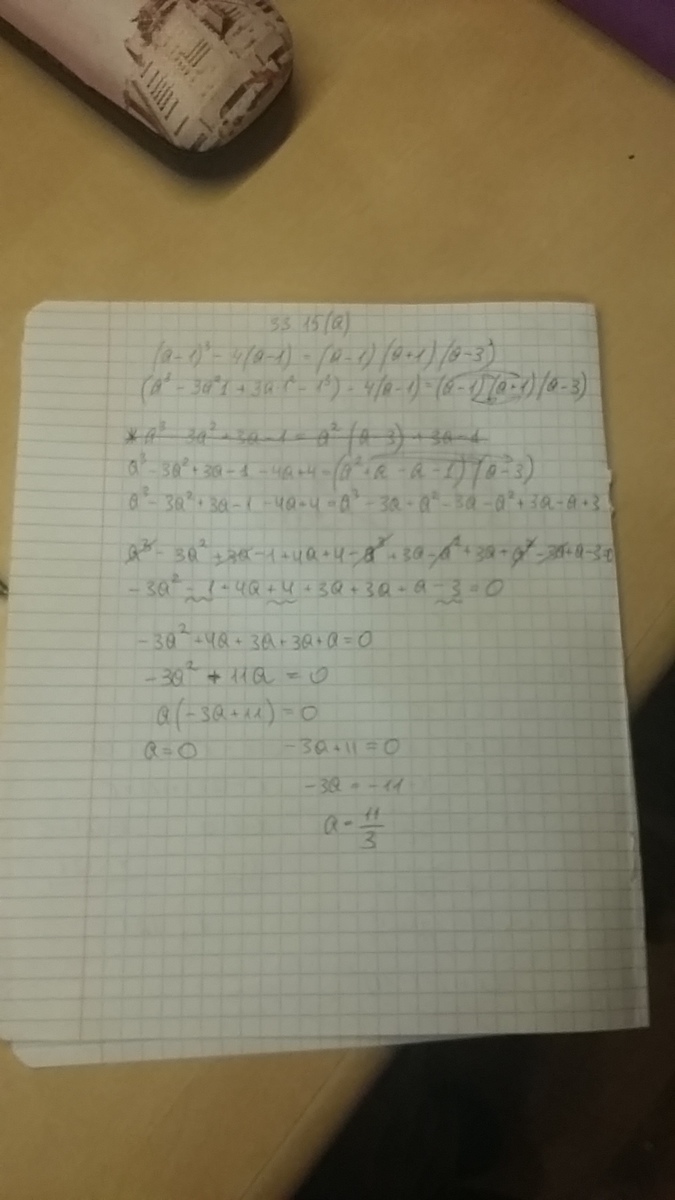 33.15(а)
(a-1)³ - 4(a-1) = (a-1)(a+1)(a-3)
(a³ - 3a²1 + 3a·1² - 1³) - 4(a-1) = (a-1)(a+1)(a-3)
a³ - 3a² + 3a - 1 = a²(a-3) + 3a - 1
a³ - 3a² + 3a - 1 - 4a + 4 = (a² + a - a - 1)(a-3)
a³ - 3a² + 3a - 1 - 4a + 4 = a³ - 3a + a² - 3a - a² + 3a - a + 3
a³ - 3a² + 3a - 1 + 4a + 4 - a³ + 3a - a² + 3a + a² - 3a + a - 3
-3a² - 1 + 4a + 4 + 3a + 3a + a - 3 = 0
-3a² + 4a + 3a + 3a + a = 0
-3a² + 11a = 0
a(-3a + 11) = 0
a = 0 -3a + 11 = 0
-3a = -11
a = 11/3